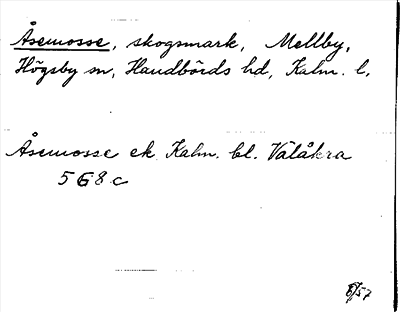 Åsemosse, skogsmark, Mellby,
Högsby sn, Handbörds hd, Kalm. l.
Åsemosse ek. Kalm. bl. Välåkra
5 G 8 c